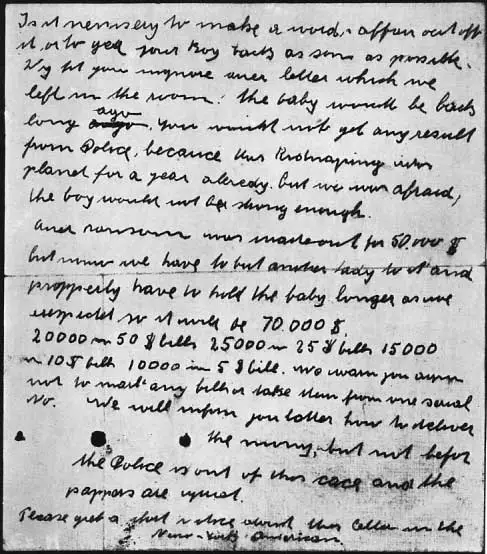 Is it nessisery to make a word's affair out off
it, or to get your Boy back as son as possible.
Wy did you ingnore ouer letter which we
left in the room? the baby would be back
long ago. You would not get any result
from Police, because this Kidnaping was
planet for a year allredy. but we was afraid,
the boy would not be strong enough.
And ransom was made out for 50.000 $
but now we have to but another lady to it and
propperly have to hold the baby longer as we
expected so it will be 70.000 $.
20000 in 50 $ bills 25000 in 25 $ bills 15000
in 10 $ bills 10000 in 5 $ bill. We warn you again
not to mark any bills or take them from one serial
No. We will inform you latter how to deliver
the mony, but not befor
the Police is out of this cace and the
pappers are quiet.
Please get a short notice about this letter in the
New-York American.